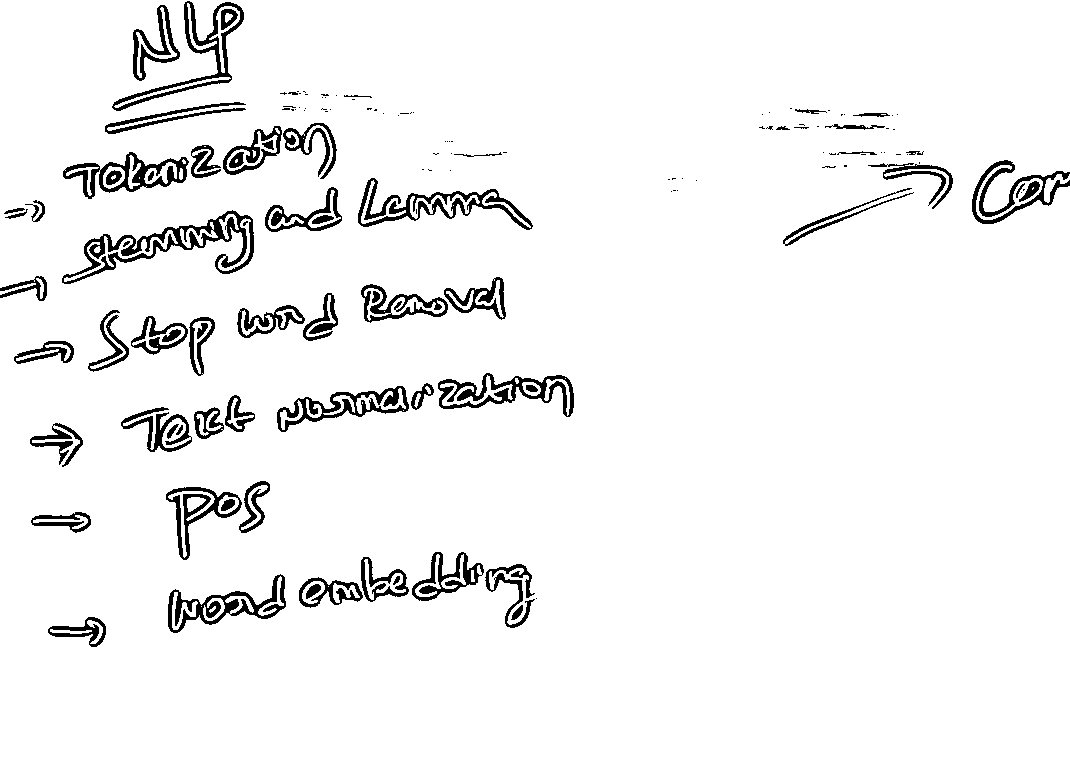 NLP
→ Tokenization
→ Stemming and Lemma
→ Stop word Removal
→ Text Normalization
→ POS
→ word embedding
→ Cor